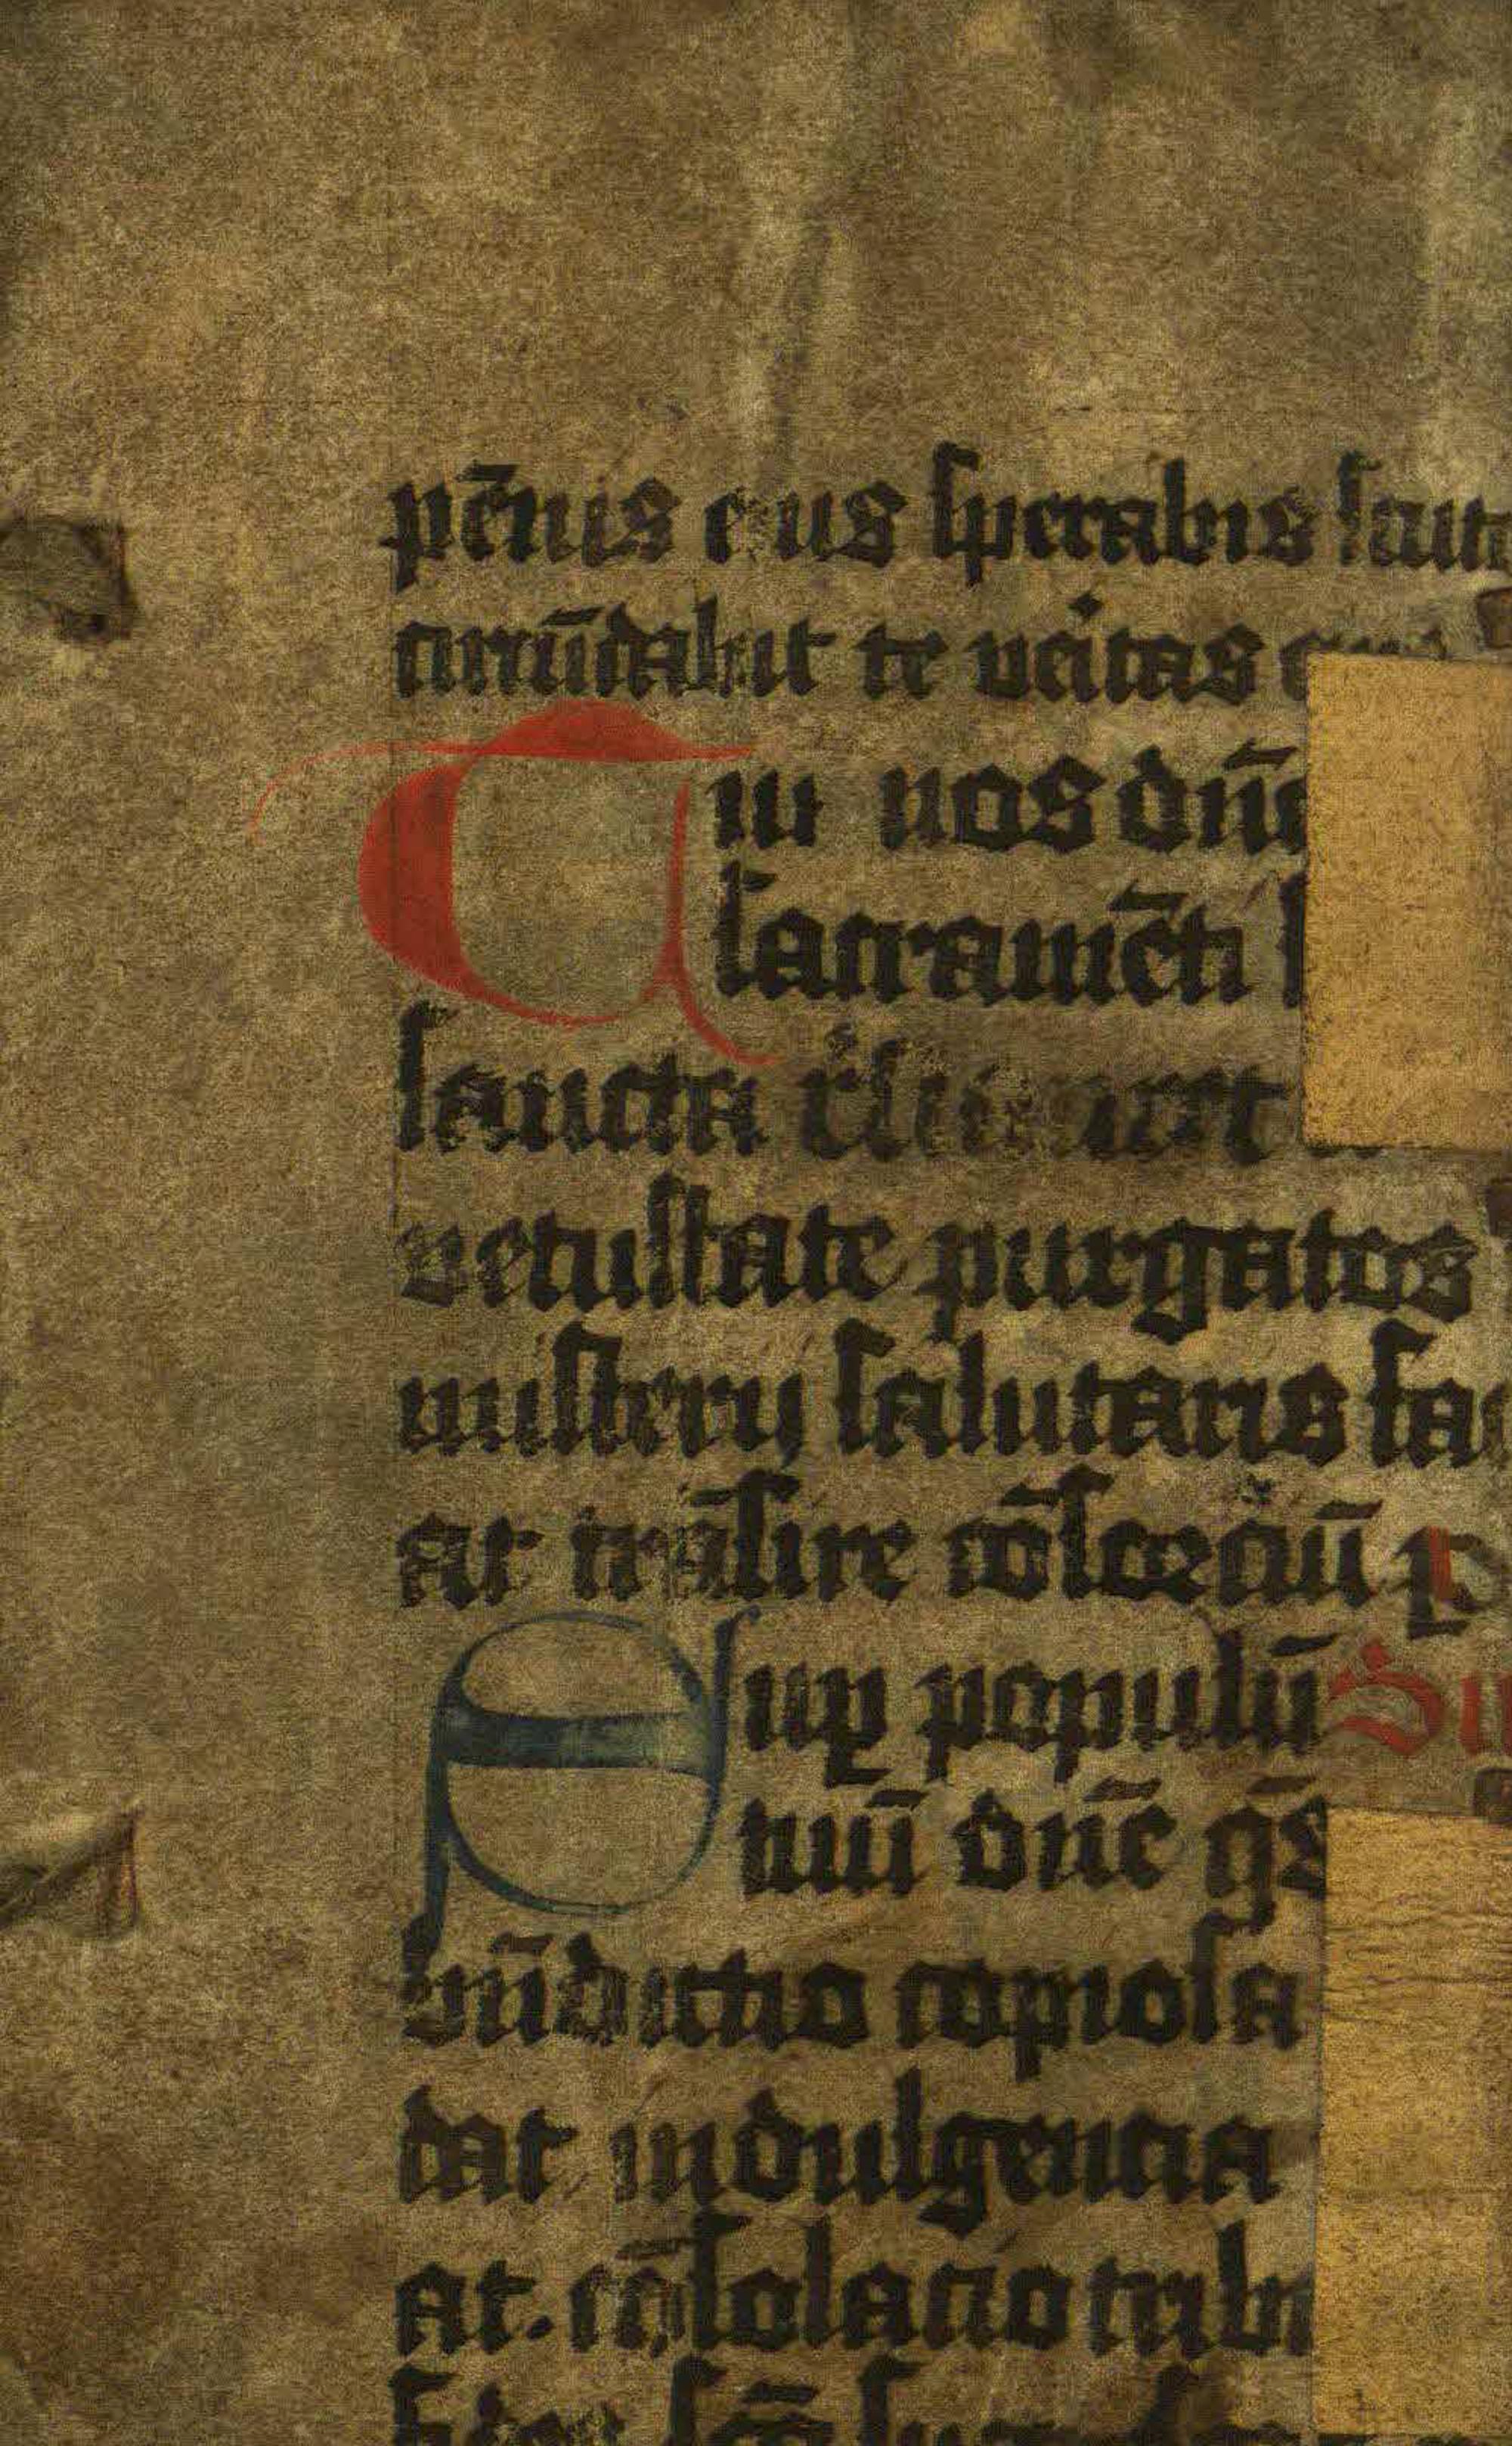 pēnis eius sperabis scut
circūdabit te ueitas
Tui nos dn̄e
sacramēti
sancta
vetustate purgatos
misterij salutaris fac
at trāsire cōsorciū p
Sup populū Su
tuū dn̄e qs
bn̄dictio copiosa
dat indulgencia
at. cōsolacio tribu